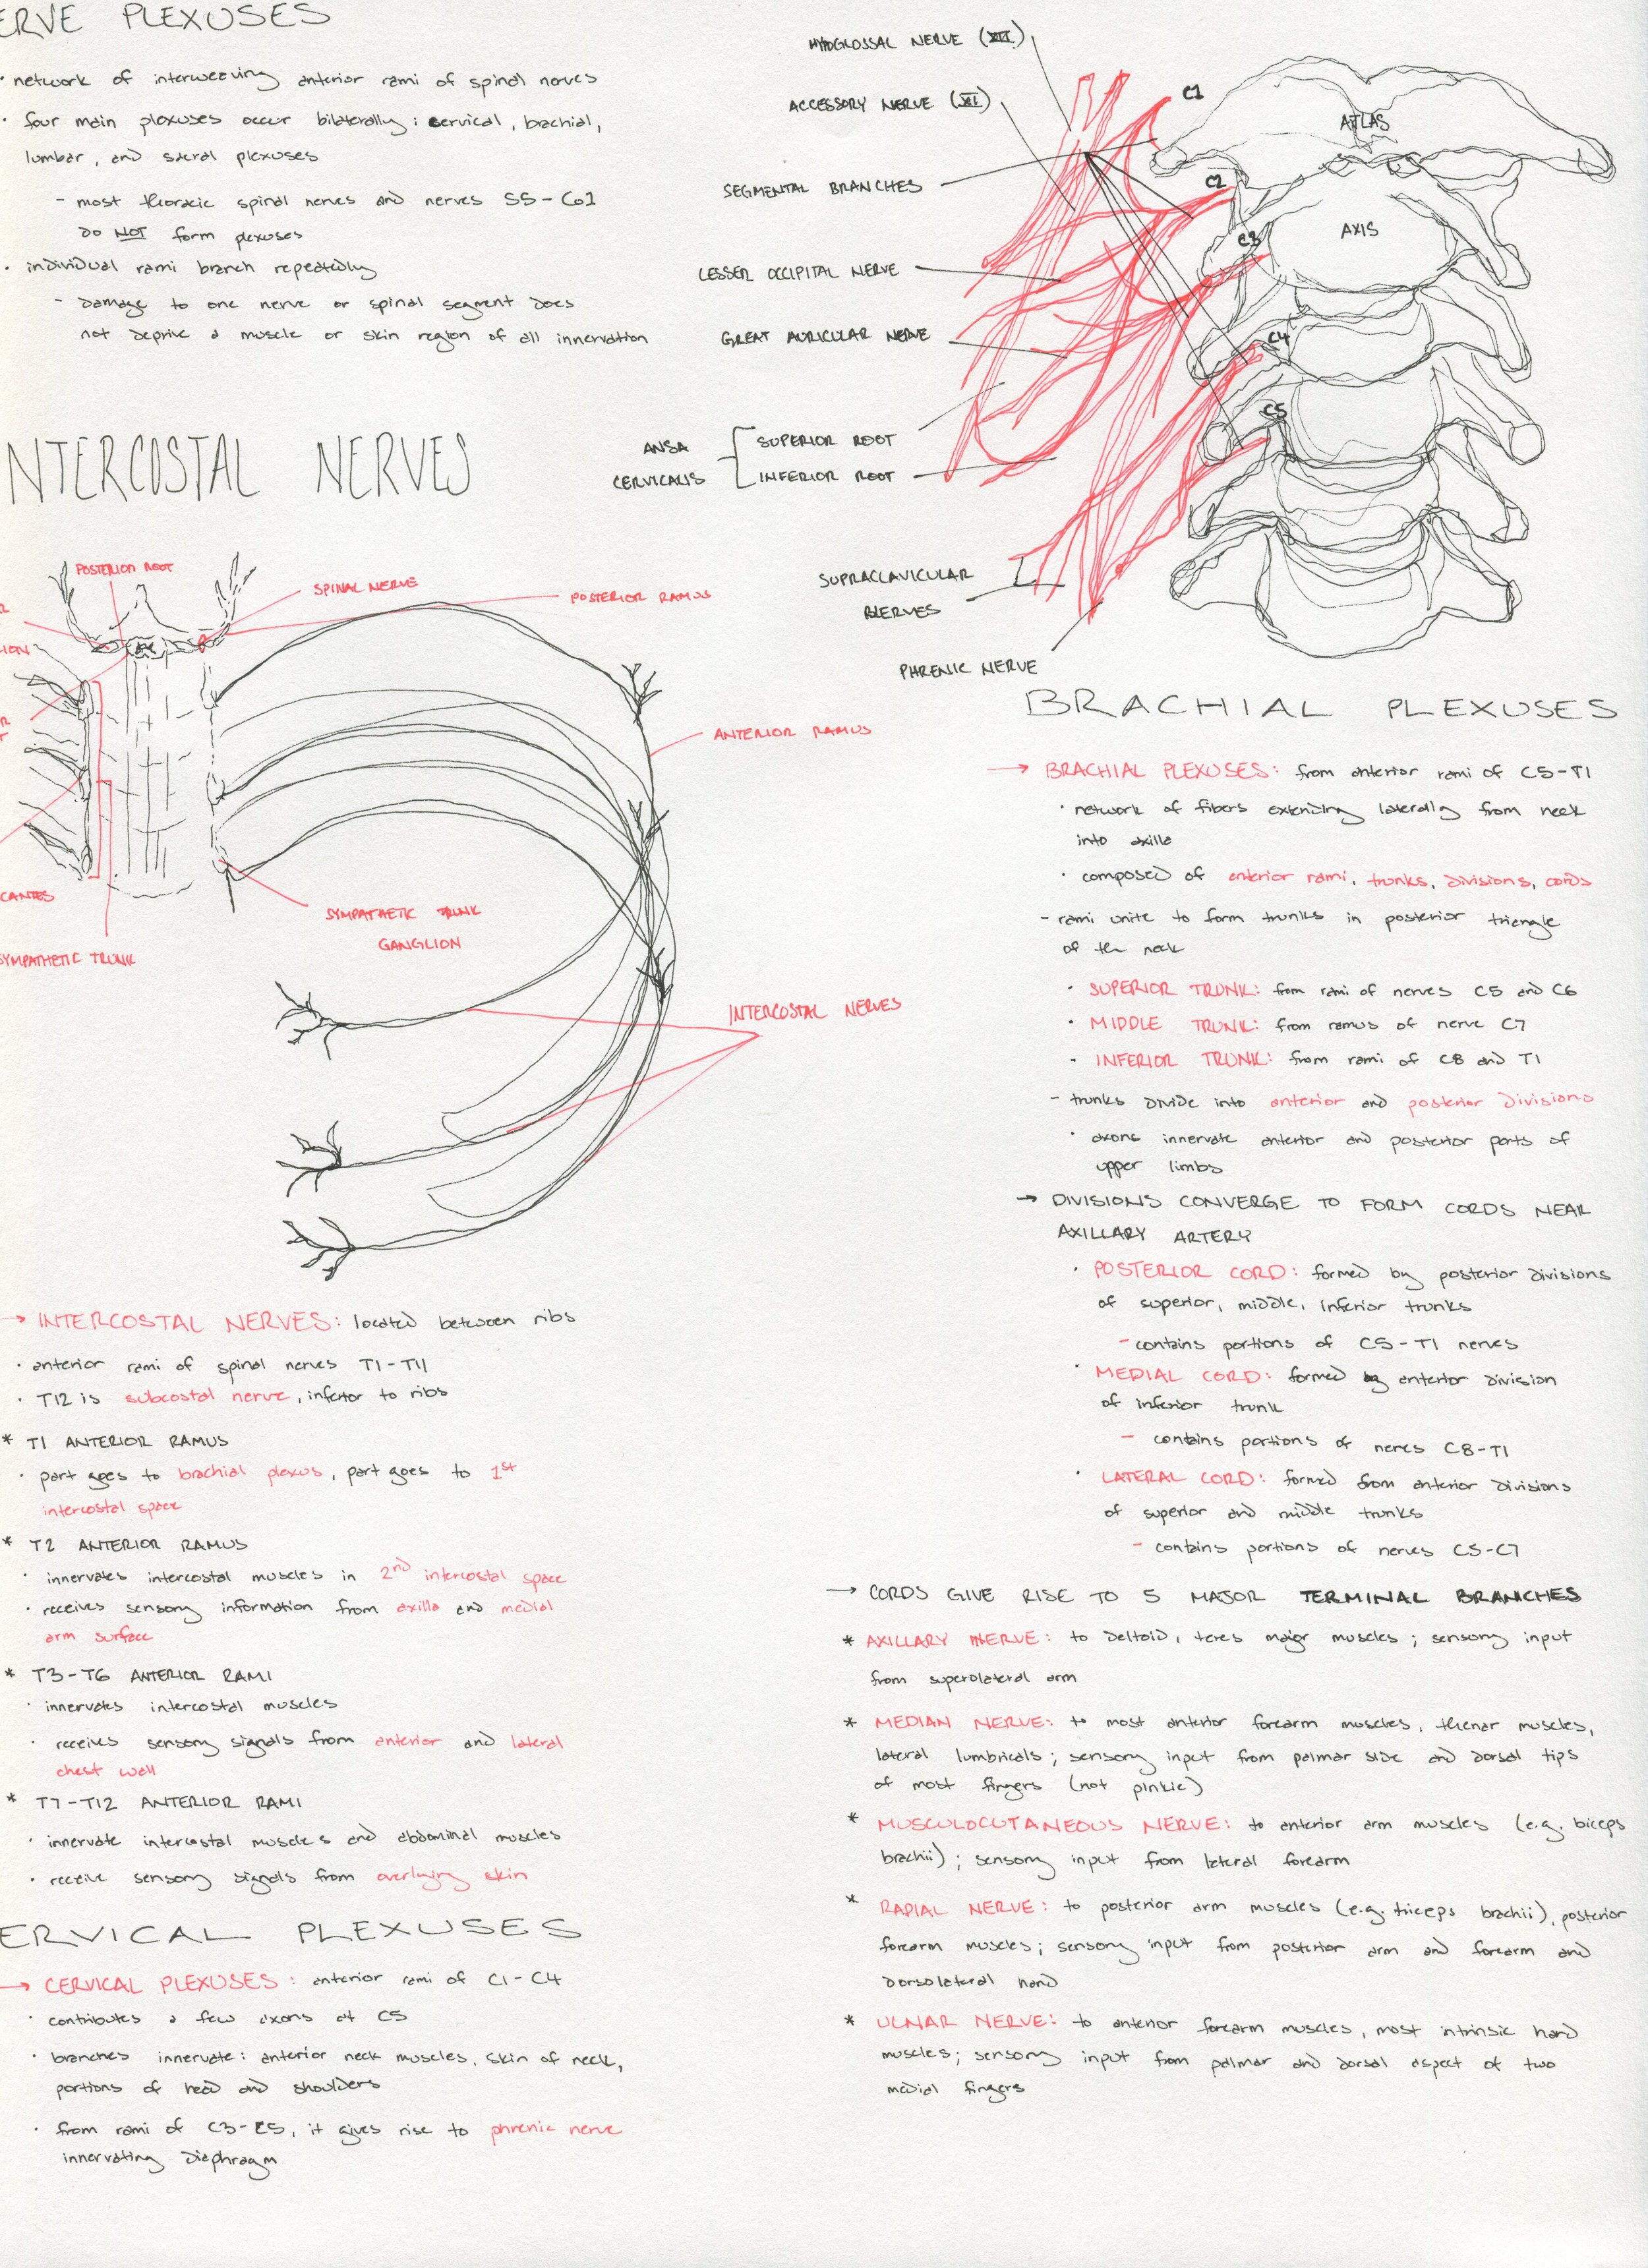 ERVE PLEXUSES
· network of interweaving anterior rami of spinal nerves
· four main plexuses occur bilaterally: cervical, brachial,
lumbar, and sacral plexuses
- most thoracic spinal nerves and nerves S5-Co1
do NOT form plexuses
· individual rami branch repeatedly
- damage to one nerve or spinal segment does
not deprive a muscle or skin region of all innervation
INTERCOSTAL NERVES
POSTERIOR ROOT
SPINAL NERVE
POSTERIOR RAMUS
ANTERIOR RAMUS
SYMPATHETIC TRUNK
GANGLION
CANTES
SYMPATHETIC TRUNK
INTERCOSTAL NERVES
→ INTERCOSTAL NERVES: located between ribs
· anterior rami of spinal nerves T1-T11
· T12 is subcostal nerve, inferior to ribs
* T1 ANTERIOR RAMUS
· part goes to brachial plexus, part goes to 1st
intercostal space
* T2 ANTERIOR RAMUS
· innervates intercostal muscles in 2nd intercostal space
· receives sensory information from axilla and medial
arm surface
* T3-T6 ANTERIOR RAMI
· innervates intercostal muscles
· receives sensory signals from anterior and lateral
chest wall
* T7-T12 ANTERIOR RAMI
· innervate intercostal muscles and abdominal muscles
· receive sensory signals from overlying skin
ERVICAL PLEXUSES
→ CERVICAL PLEXUSES: anterior rami of C1-C4
· contributes a few axons of C5
· branches innervate: anterior neck muscles, skin of neck,
portions of head and shoulders
· from rami of C3-C5, it gives rise to phrenic nerve
innervating diaphragm
HYPOGLOSSAL NERVE (XII)
ACCESSORY NERVE (XI)
SEGMENTAL BRANCHES
LESSER OCCIPITAL NERVE
GREAT AURICULAR NERVE
ANSA
CERVICALIS
SUPERIOR ROOT
INFERIOR ROOT
SUPRACLAVICULAR
NERVES
PHRENIC NERVE
C1
ATLAS
C2
AXIS
C3
C4
C5
BRACHIAL PLEXUSES
→ BRACHIAL PLEXUSES: from anterior rami of C5-T1
· network of fibers extending laterally from neck
into axilla
· composed of anterior rami, trunks, divisions, cords
- rami unite to form trunks in posterior triangle
of the neck
· SUPERIOR TRUNK: from rami of nerves C5 and C6
· MIDDLE TRUNK: from ramus of nerve C7
· INFERIOR TRUNK: from rami of C8 and T1
- trunks divide into anterior and posterior divisions
· axons innervate anterior and posterior parts of
upper limbs
→ DIVISIONS CONVERGE TO FORM CORDS NEAR
AXILLARY ARTERY
· POSTERIOR CORD: formed by posterior divisions
of superior, middle, inferior trunks
- contains portions of C5-T1 nerves
· MEDIAL CORD: formed by anterior division
of inferior trunk
- contains portions of nerves C8-T1
· LATERAL CORD: formed from anterior divisions
of superior and middle trunks
- contains portions of nerves C5-C7
→ CORDS GIVE RISE TO 5 MAJOR TERMINAL BRANCHES
* AXILLARY NERVE: to deltoid, teres major muscles; sensory input
from superolateral arm
* MEDIAN NERVE: to most anterior forearm muscles, thenar muscles,
lateral lumbricals; sensory input from palmar side and dorsal tips
of most fingers (not pinkie)
* MUSCULOCUTANEOUS NERVE: to anterior arm muscles (e.g. biceps
brachii); sensory input from lateral forearm
* RADIAL NERVE: to posterior arm muscles (e.g. triceps brachii), posterior
forearm muscles; sensory input from posterior arm and forearm and
dorsolateral hand
* ULNAR NERVE: to anterior forearm muscles, most intrinsic hand
muscles; sensory input from palmar and dorsal aspect of two
medial fingers